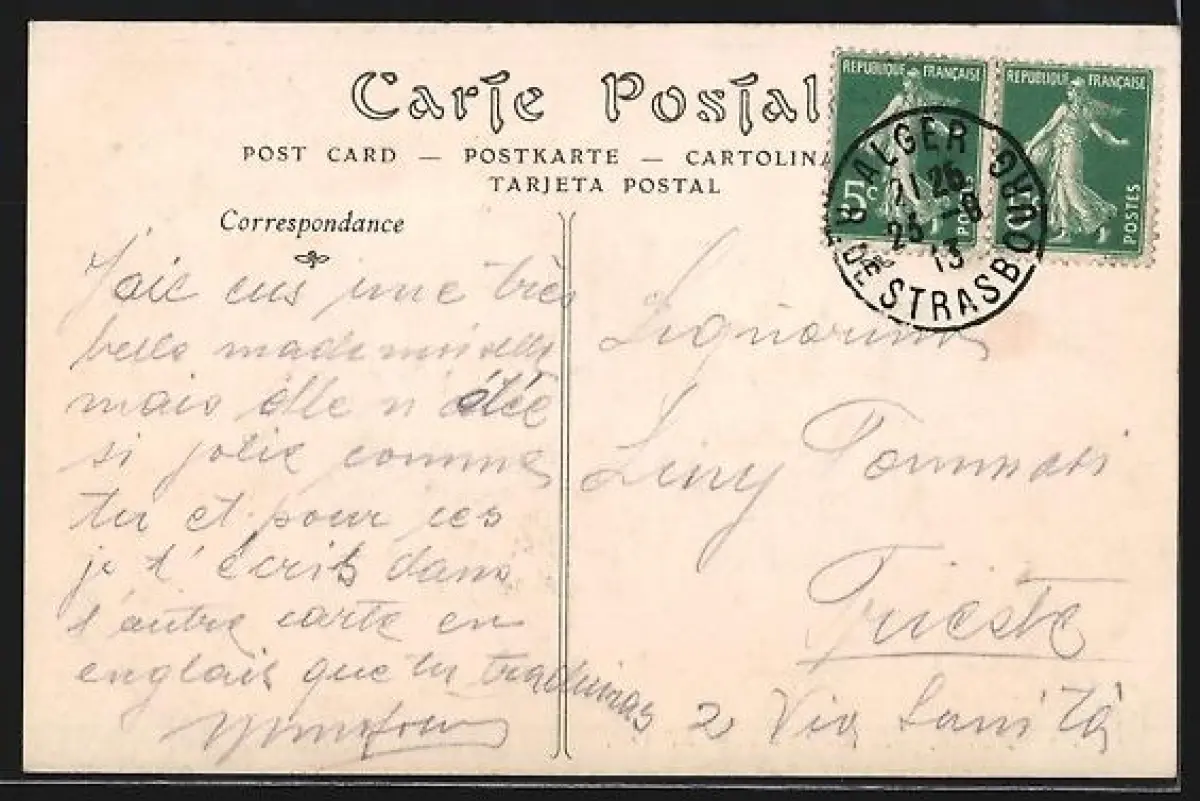 Carte Postale
POST CARD — POSTKARTE — CARTOLINA
TARJETA POSTAL
REPUBLIQUE FRANÇAISE
5c
POSTES
REPUBLIQUE FRANÇAISE
POSTES
ALGER R. DE STRASBOURG
21 25
25 -8
13
Correspondance
J'aie eus une très
belle mademoiselle
mais elle n étée
si jolie comme
tu et pour ces
je t'écris dans
l'autre carte en
englais que tu traduiras
Signorina
Leny Tommasi
Trieste
2 Via Sanità